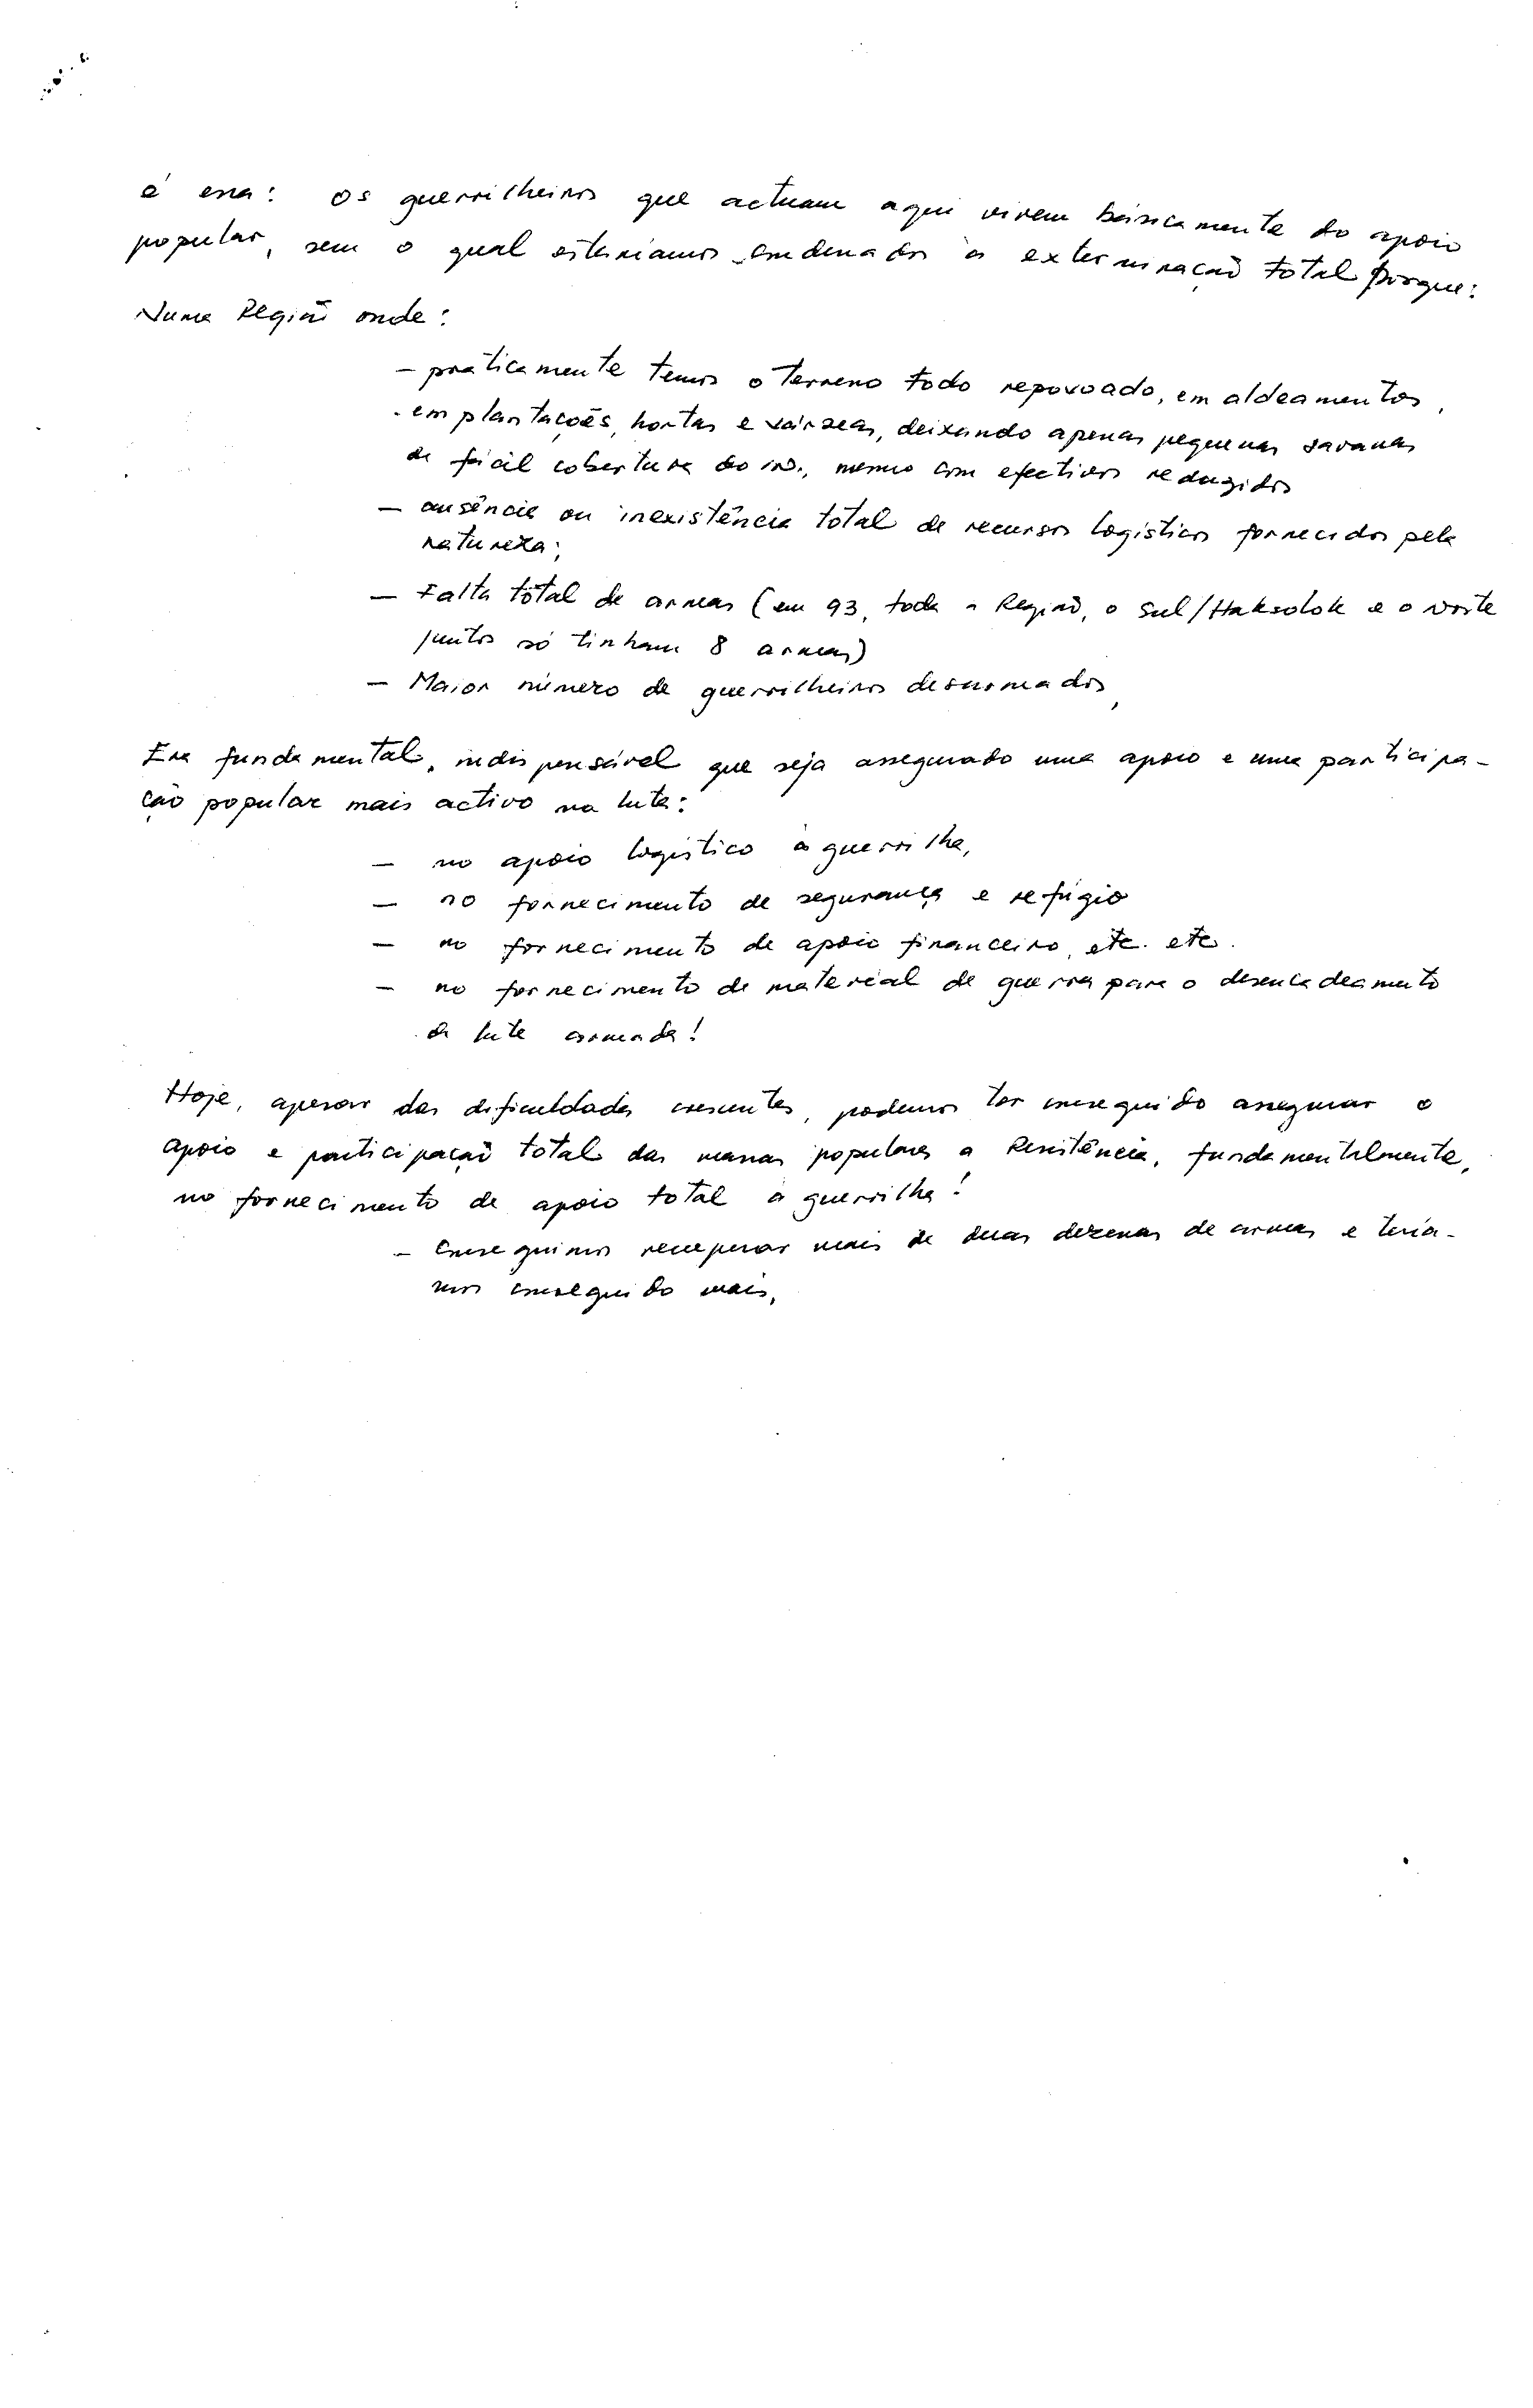 é essa: os guerrilheiros que actuam aqui vivem básicamente do apoio
popular, sem o qual estariamos condenados à exterminação total porque:
Numa Região onde:
– praticamente temos o terreno todo repovoado, em aldeamentos,
em plantações, hortas e várzeas, deixando apenas pequenas savanas
de fácil cobertura do in., mesmo com efectivos reduzidos
– ausência ou inexistência total de recursos logísticos fornecidos pela
natureza;
– Falta total de armas (em 93, toda a Região, o Sul/Haksolok e o Norte
juntos só tinham 8 armas)
– Maior número de guerrilheiros desarmados,
Era fundamental, indispensável que seja assegurado uma apoio e uma participa-
ção popular mais activo na luta:
– no apoio logístico à guerrilha,
– no fornecimento de segurança e refúgio
– no fornecimento de apoio financeiro, etc. etc.
– no fornecimento de material de guerra para o desencadeamento
da luta armada!
Hoje, apesar das dificuldades crescentes, podemos ter conseguido assegurar o
apoio e participação total das massas populares a Resistência, fundamentalmente,
no fornecimento de apoio total à guerrilha!
– Conseguimos recuperar mais de duas dezenas de armas e tería-
mos conseguido mais,